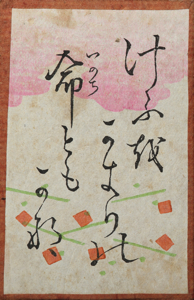 けふを
かきりの
いのち
命とも
かな